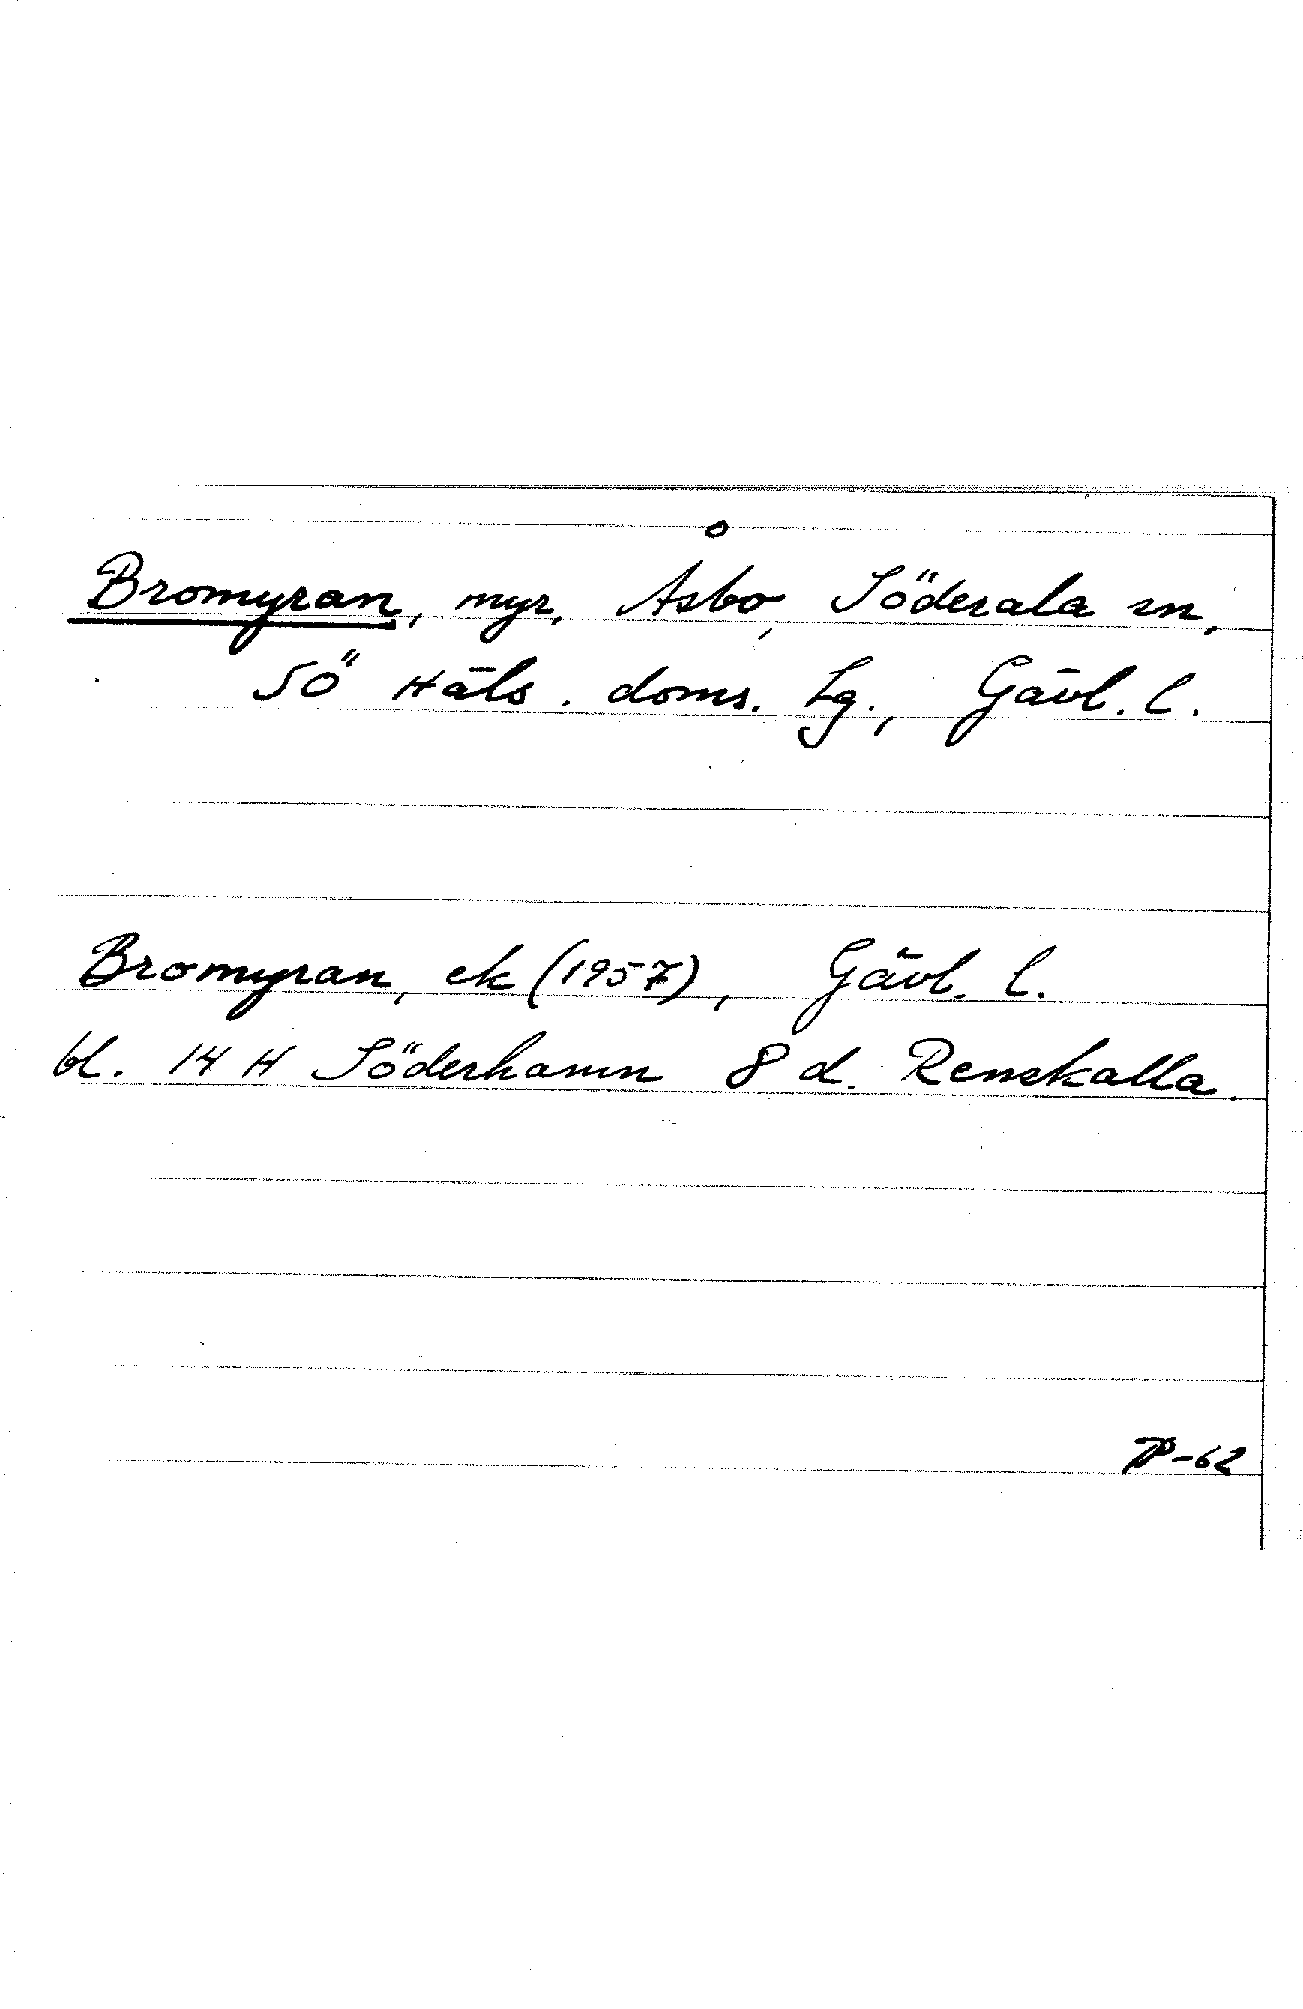 Bromyran, myr, Åsbo, Söderala sn,
Sö Häls. doms. lg., Gävl. l.
Bromyran, ek (1957), Gävl. l.
bl. 14 H Söderhamn 8 d. Renskalla.
-62